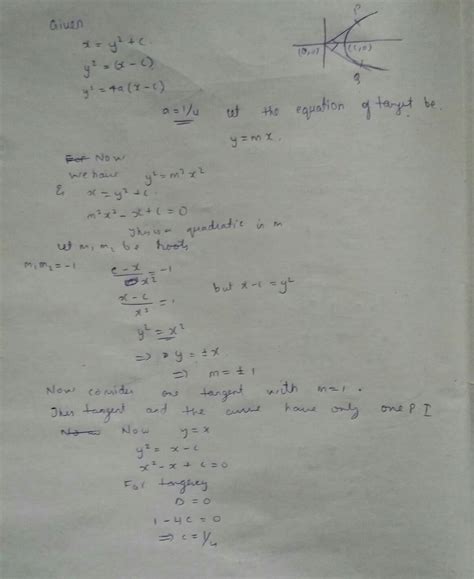 Given
x = y² + c.
y² = (x - c)
y² = 4a(x - c)
P
(0,0)
(c,0)
Q
a = 1/4 let the equation of tangent be
y = mx.
Now
we have y² = m²x²
& x = y² + c.
m²x² - x + c = 0
This is a quadratic in m
let m, m₂ be roots
m₁m₂ = -1
c - x / x² = -1
x - c / x² = 1
but x - c = y²
y² = x²
⇒ y = ± x
⇒ m = ± 1
Now consider one tangent with m = 1.
This tangent and the curve have only one P I
Now y = x
y² = x - c
x² - x + c = 0
For tangency
D = 0
1 - 4c = 0
⇒ c = 1/4